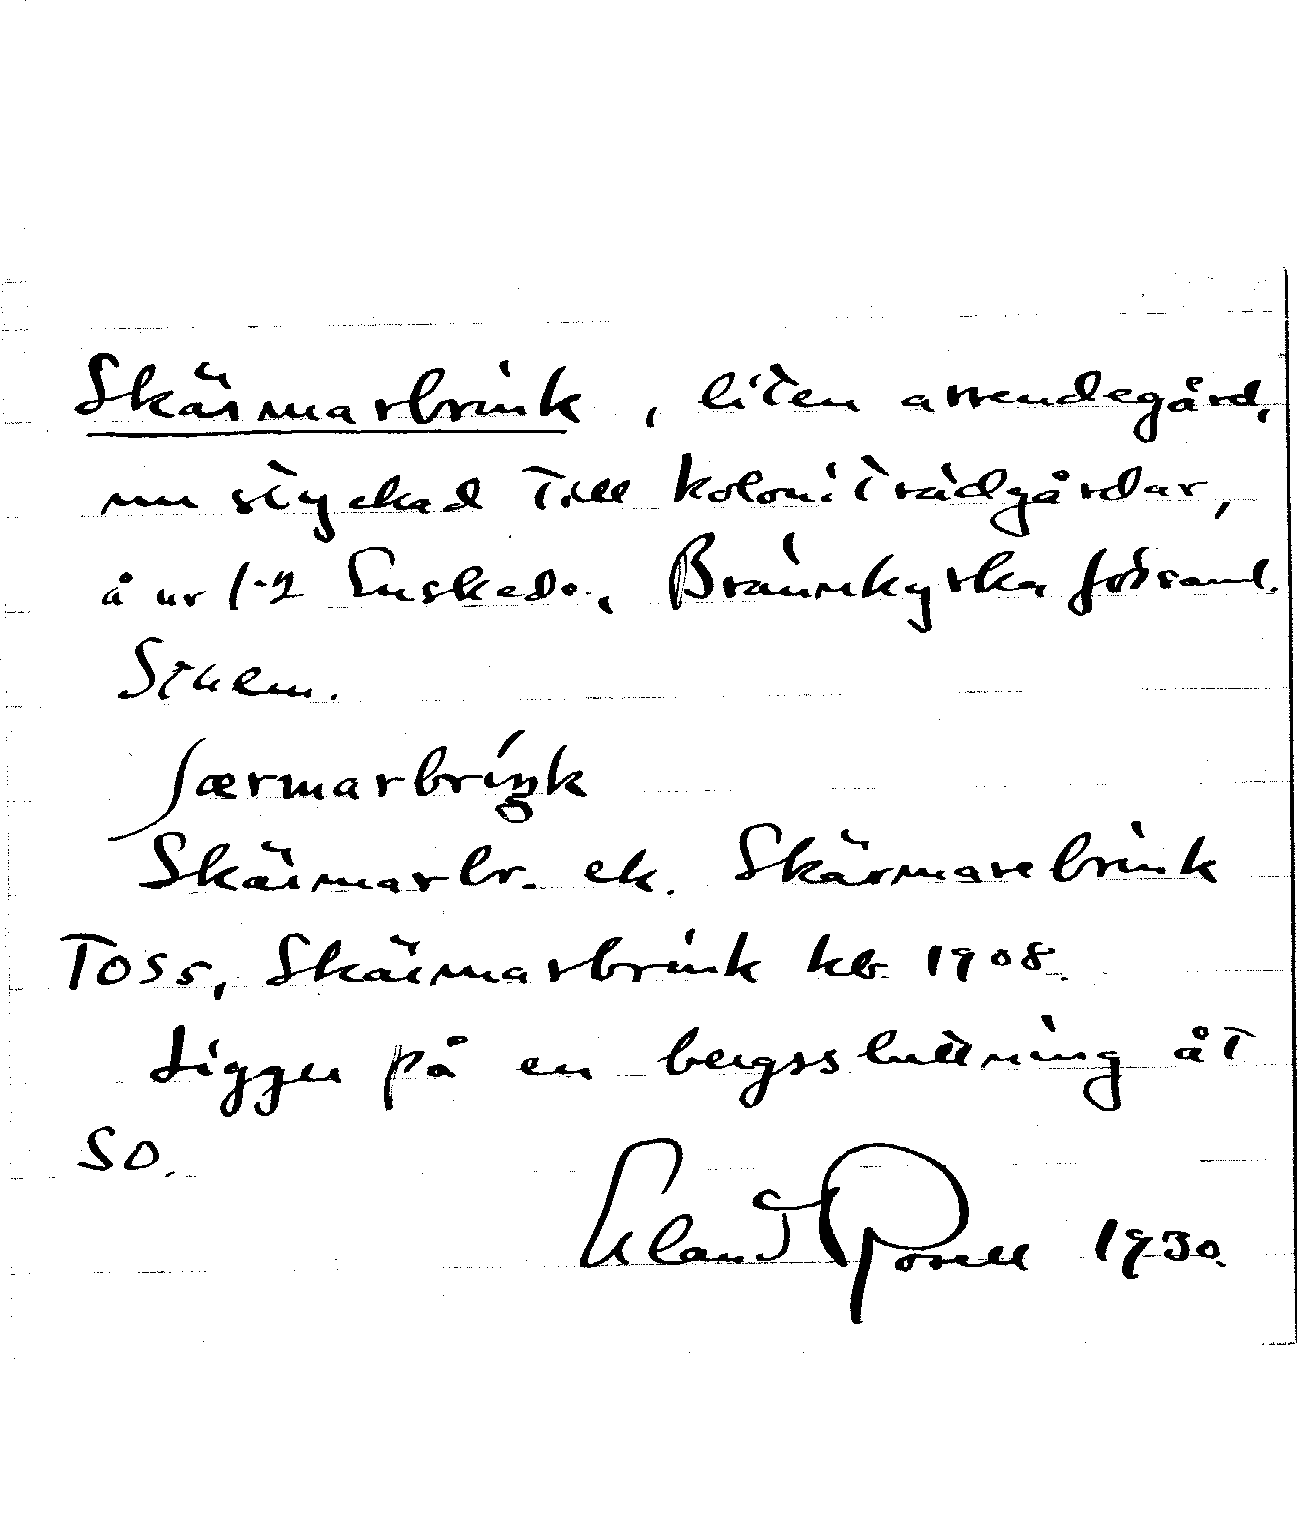 Skärmarbrink, liten arrendegård,
nu styckad till koloniträdgårdar,
å nr 1-2 Enskede, Brännkyrka församl.
Sthlm.
ʃærmarbriŋ́k
Skärmarbr. ek. Skärmarebrink
Toss, Skärmarbrink kb 1908.
Ligger på en bergssluttning åt
SO.
Erland Rosell 1930.